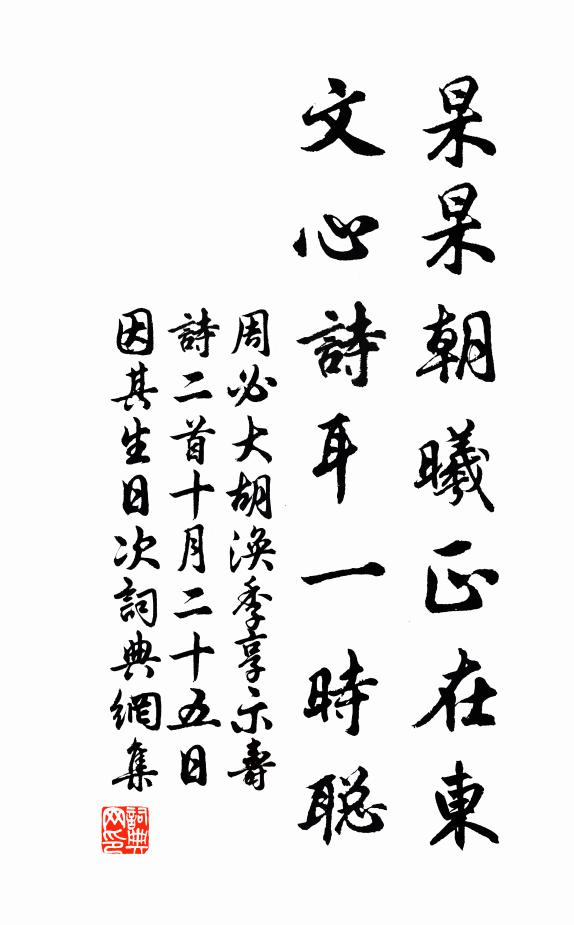 杲杲朝曦正在東
文心詩耳一時聪
周必大胡渙季享示壽
詩二首十月二十五日
因其生日次詞典網集
詞典网印